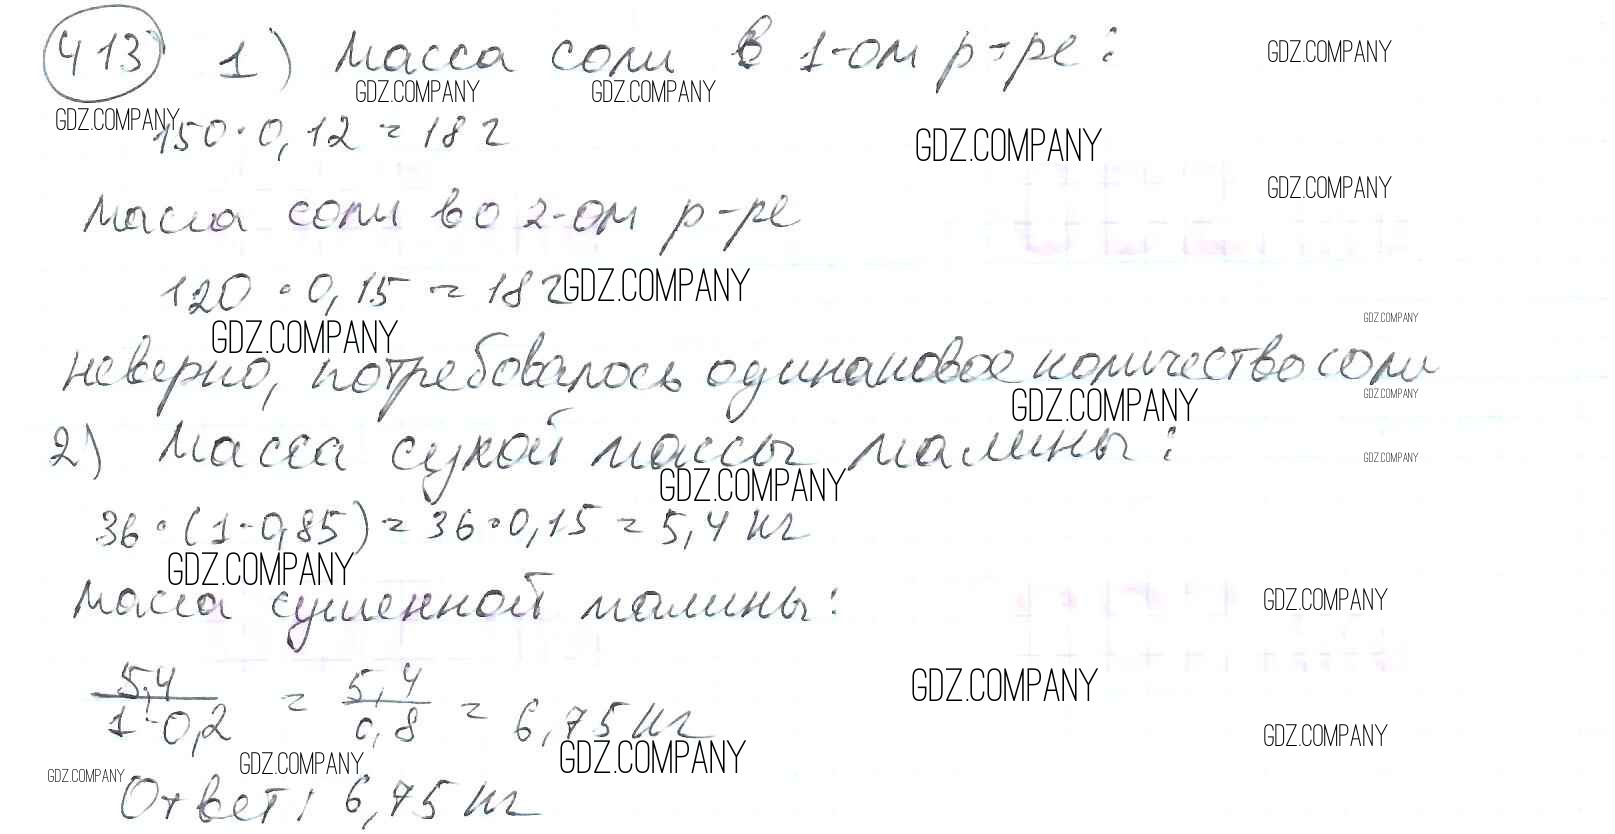 413 1) Масса соли в 1-ом р-ре: GDZ.COMPANY
GDZ.COMPANY GDZ.COMPANY
GDZ.COMPANY
150·0,12=18 г
GDZ.COMPANY
GDZ.COMPANY
Масса соли во 2-ом р-ре
120·0,15=18г GDZ.COMPANY
GDZ.COMPANY
GDZ.COMPANY
неверно, потребовалось одинаковое количество соли
GDZ.COMPANY GDZ.COMPANY
2) Масса сухой массы малины:
GDZ.COMPANY
GDZ.COMPANY
36·(1-0,85)=36·0,15=5,4 кг
GDZ.COMPANY
Масса сушенной малины: GDZ.COMPANY
5,4/1-0,2 = 5,4/0,8 = 6,75 кг
GDZ.COMPANY
GDZ.COMPANY
GDZ.COMPANY GDZ.COMPANY GDZ.COMPANY
Ответ: 6,75 кг